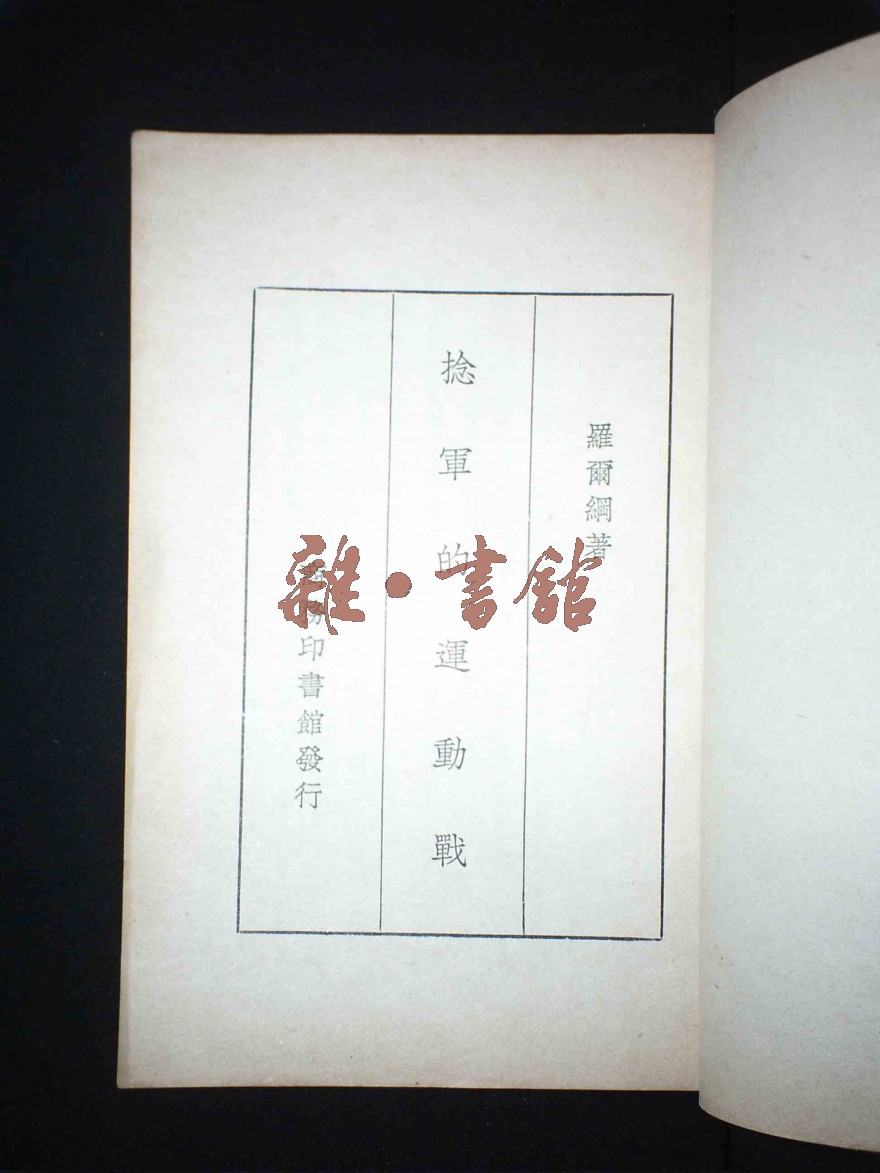 羅爾綱著
捻軍的運動戰
商務印書館發行
雜·書館